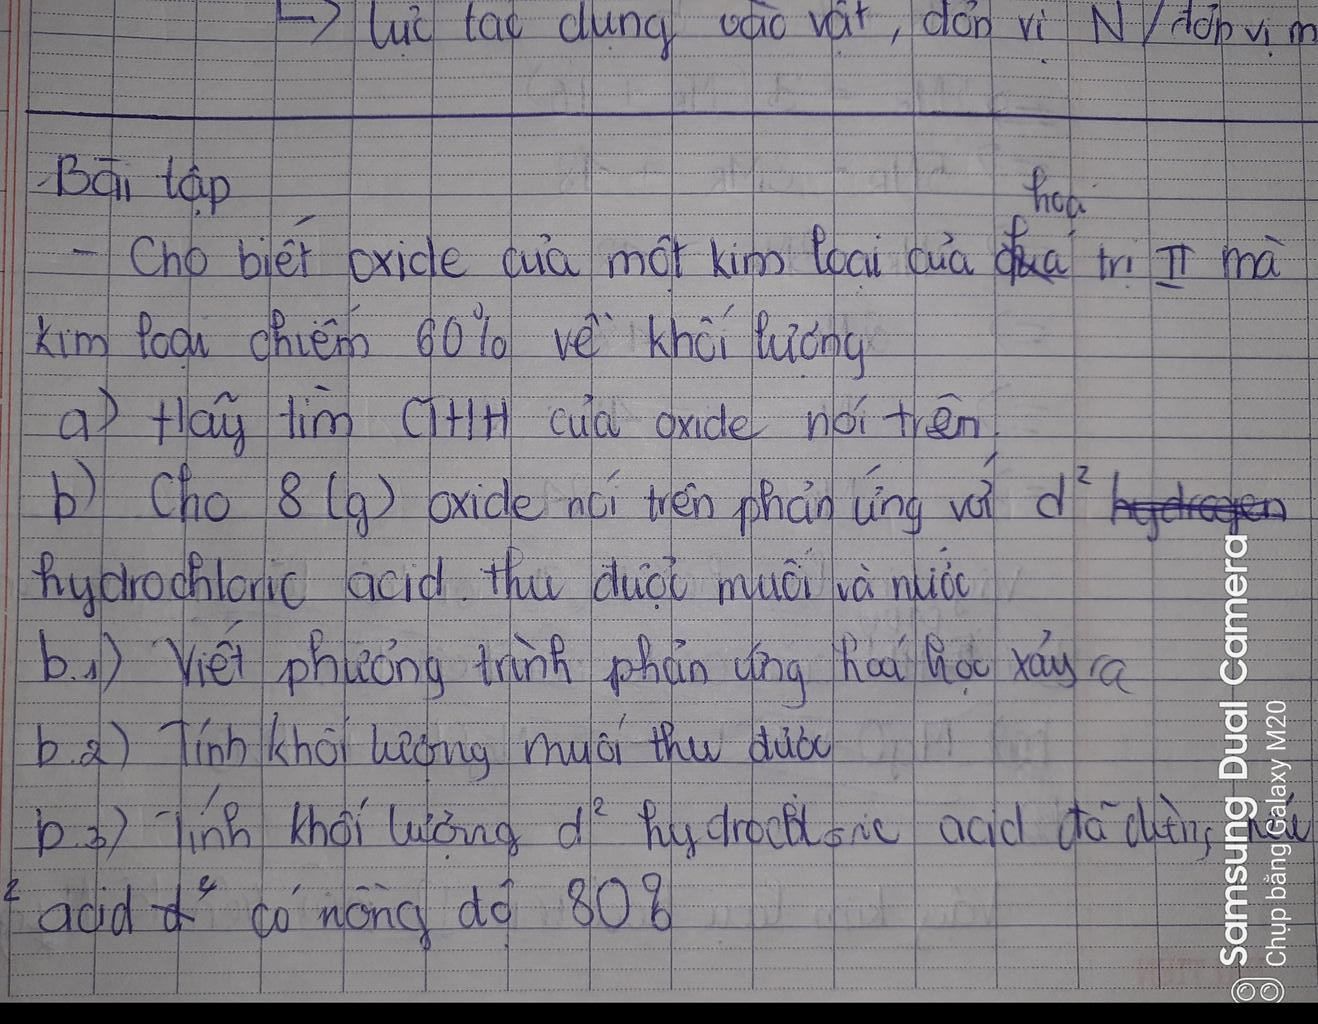 ↳ lực tác dụng vào vật, đơn vị N / đơn vị m
- Bài tập
- Cho biết oxide của một kim loại của hoá trị II mà
kim loại chiếm 60% về khối lượng
a) Hãy tìm CTHH của oxide nói trên
b) Cho 8 (g) oxide nói trên phản ứng với d² hydrogen
hydrochloric acid. thu được muối và nước
b.1) Viết phương trình phản ứng hoá học xảy ra
b.2) Tính khối lượng muối thu được
b.3) Tính khối lượng d² hydrochloric acid đã dùng, nếu
² acid d⁴ có nồng độ 80%
Samsung Dual Camera
Chụp bằng Galaxy M20